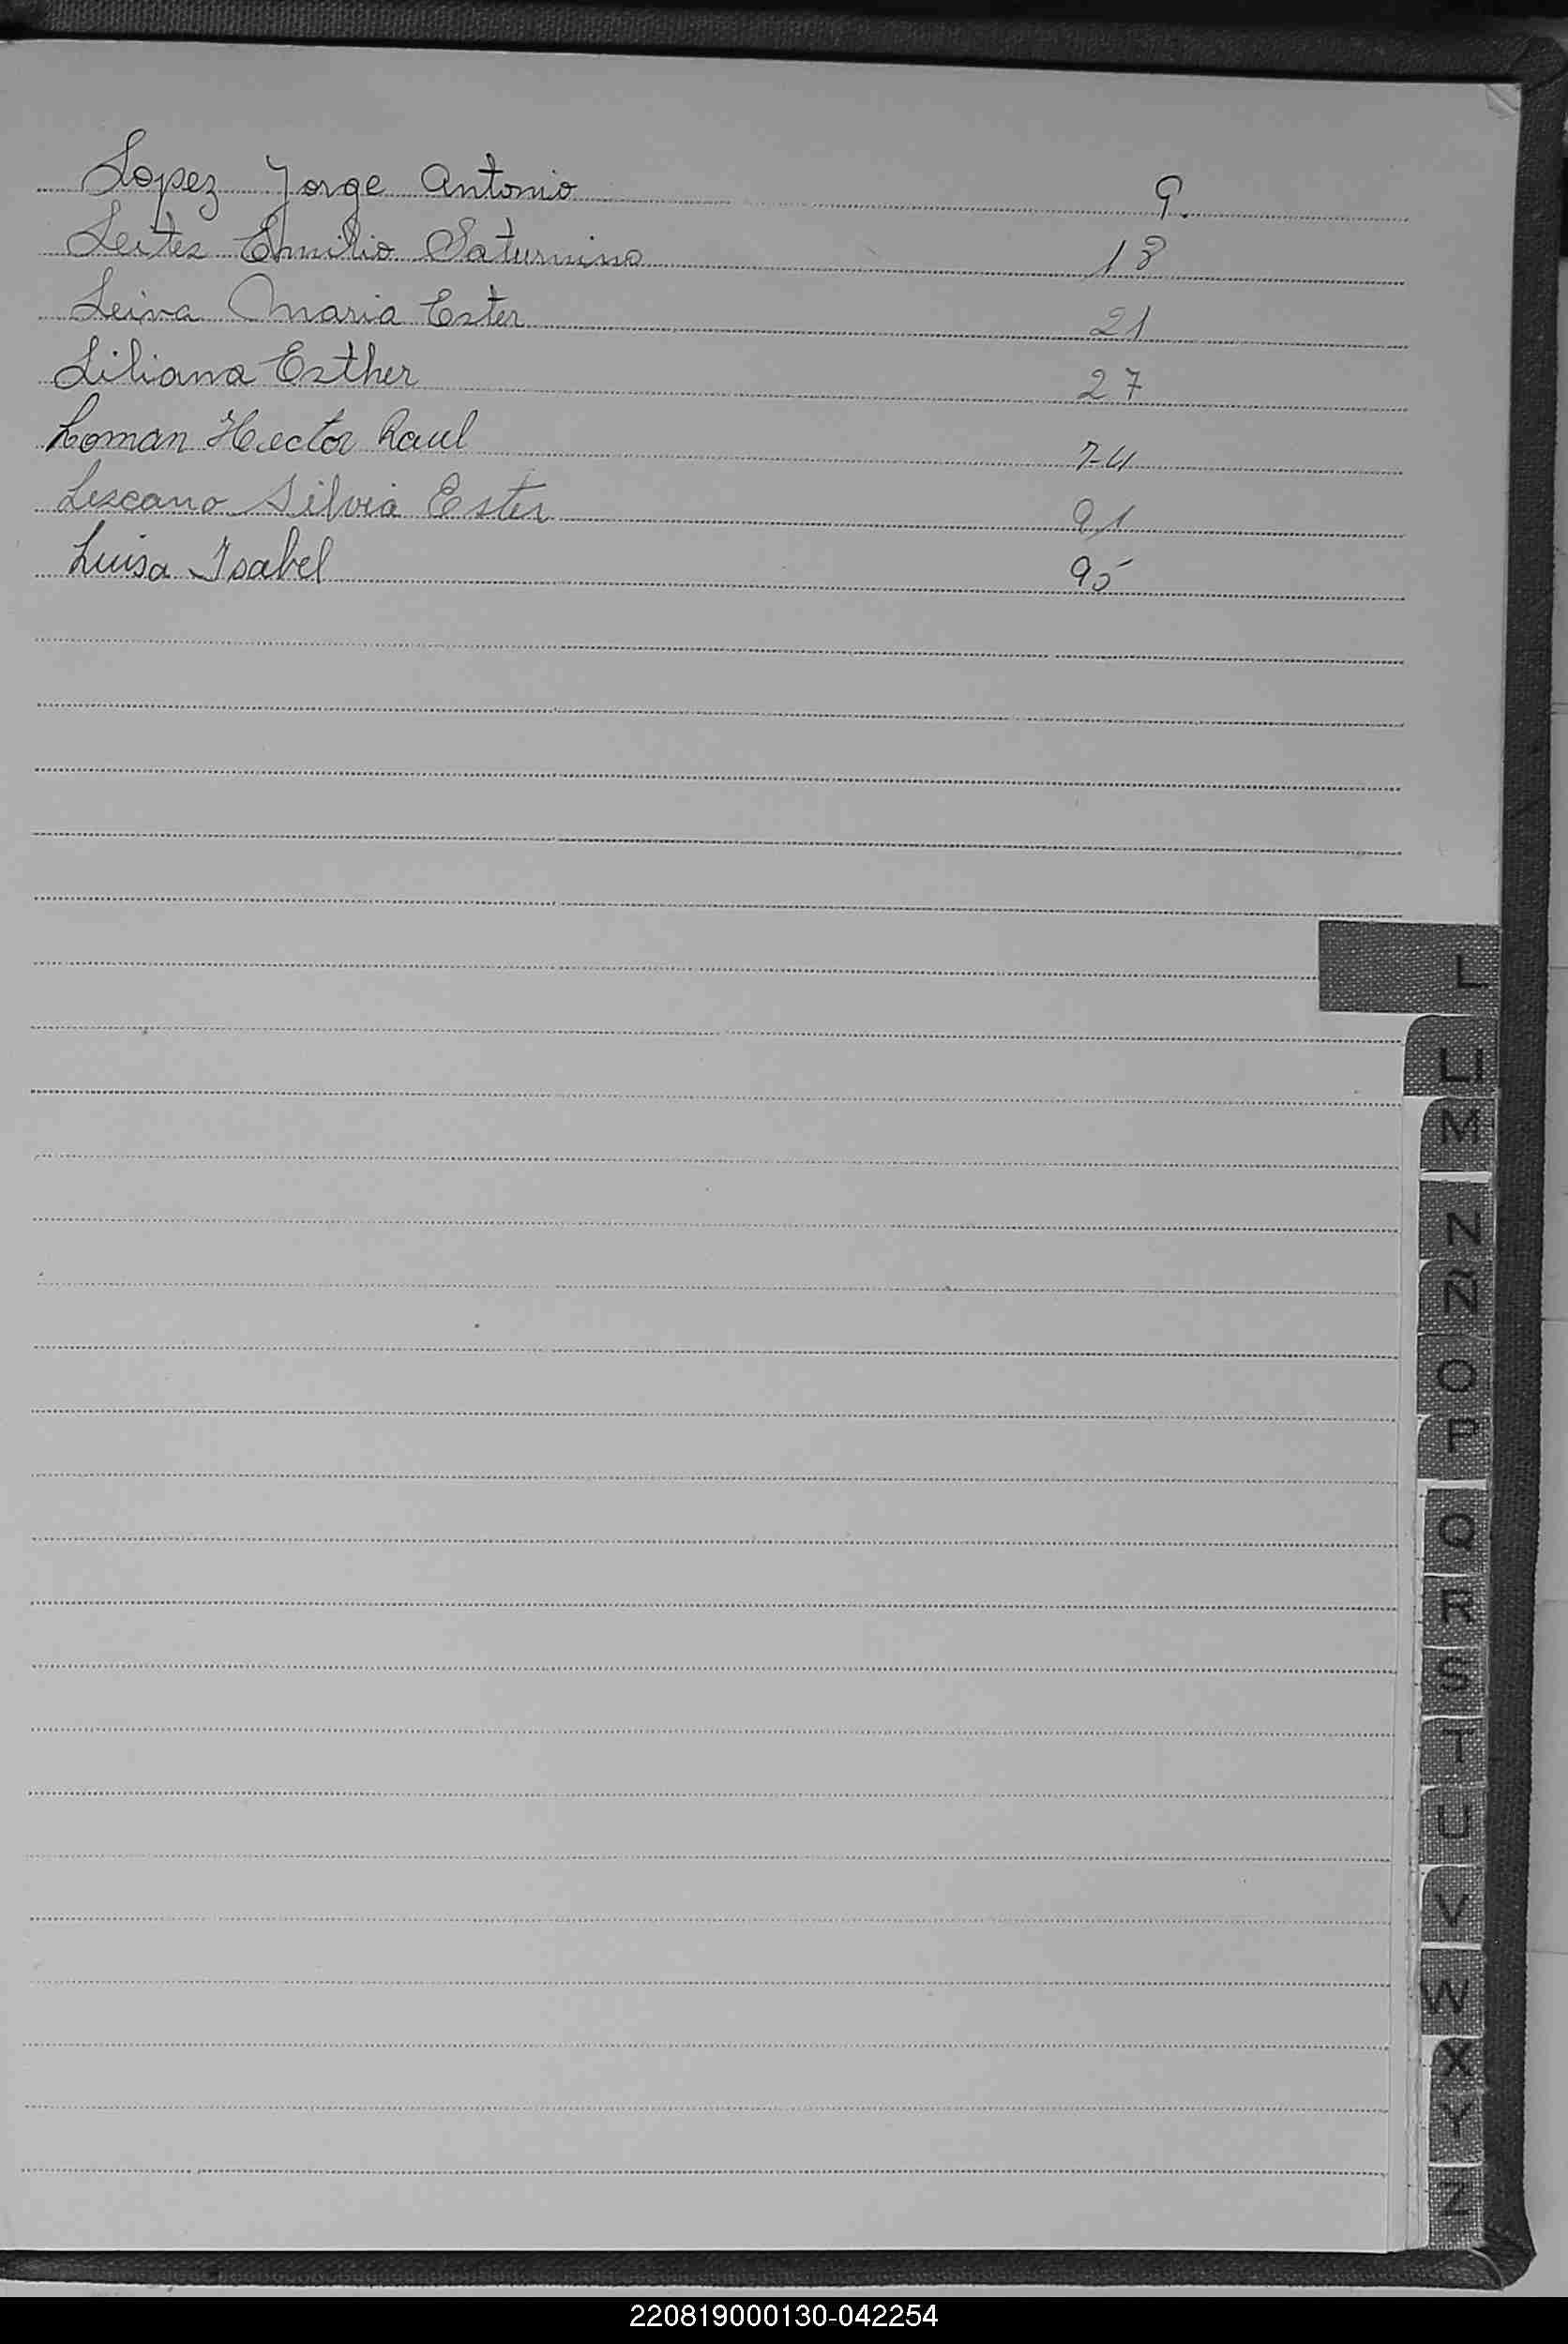 Lopez Jorge Antonio 9.
Leites Emilio Saturnino 18
Leiva Maria Ester 21
Liliana Esther 27
Loman Hector Raul 74
Lezcano Silvia Ester 91
Luisa Isabel 95
L
Ll
M
N
Ñ
O
P
Q
R
S
T
U
V
W
X
Y
Z
220819000130-042254